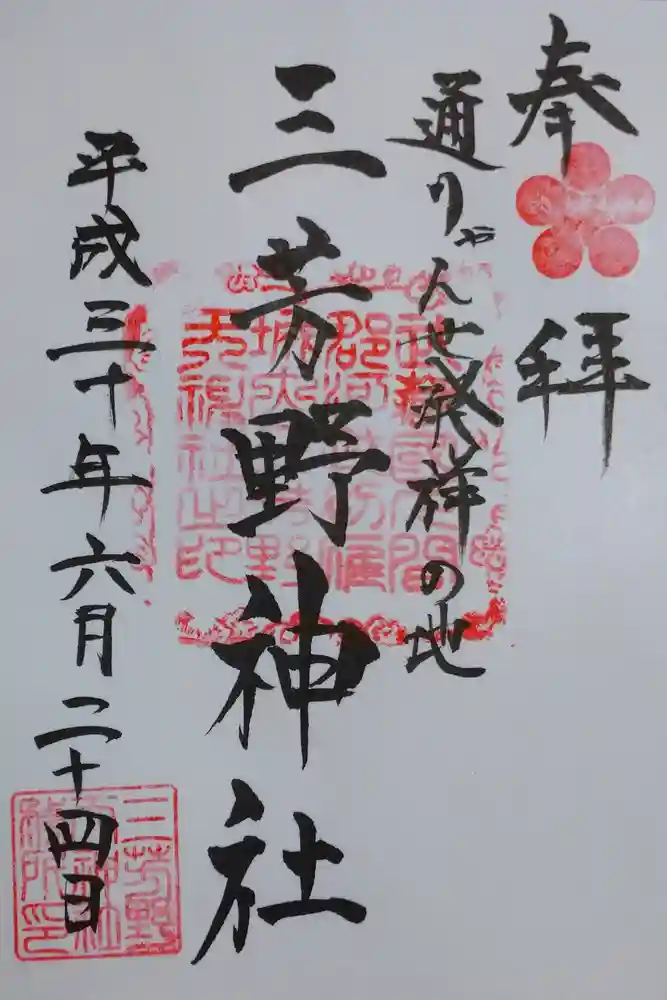 奉拝
通りゃんせ発祥の地
三芳野神社
平成三十年六月二十四日
三芳野